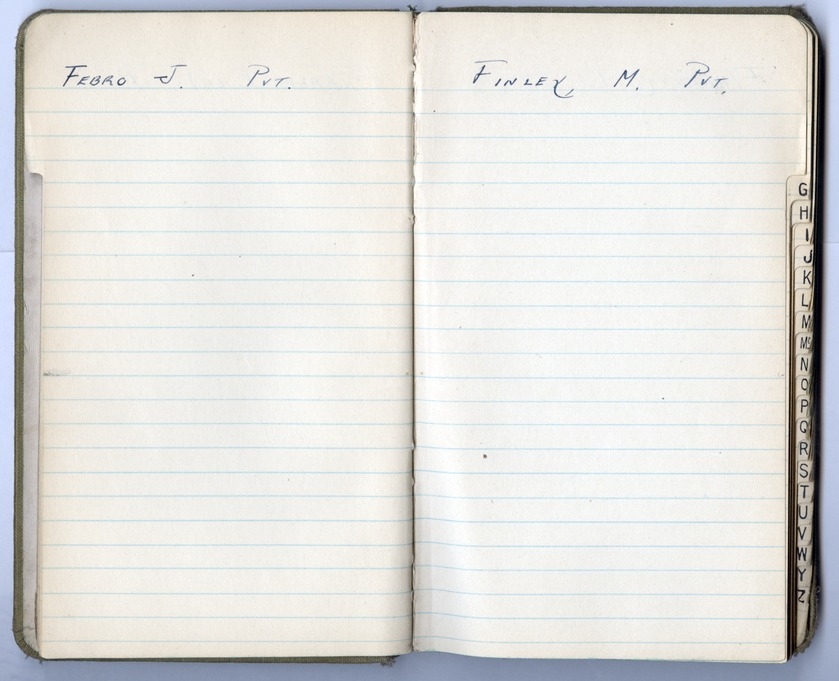 FEBRO J. PVT.
FINLEY, M. PVT.
G
H
I
J
K
L
M
Mc
N
O
P
Q
R
S
T
U
V
W
Y
Z